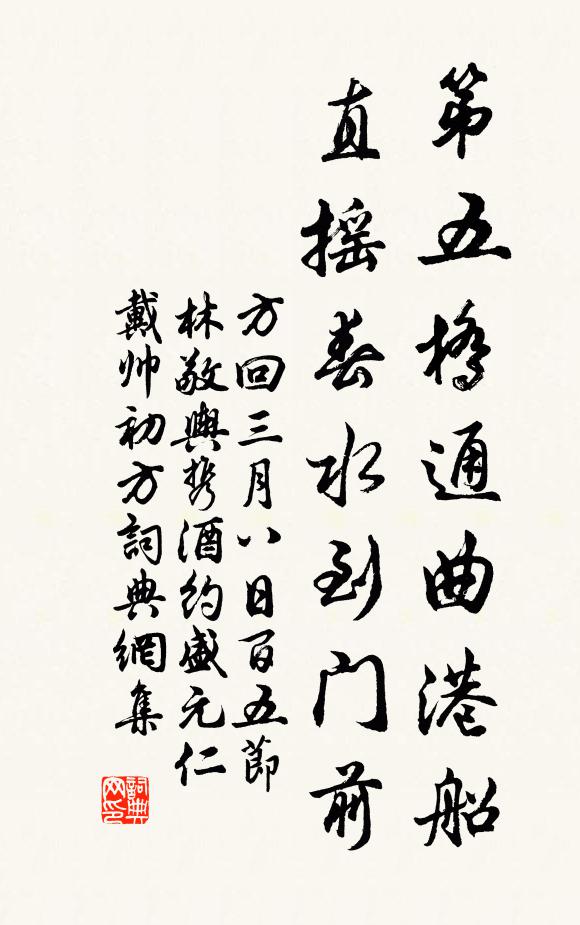 第五橋通曲港船
直摇春水到门前
方回三月八日百五節
林敬輿携酒約盛元仁
戴帅初方詞典網集
詞典网印